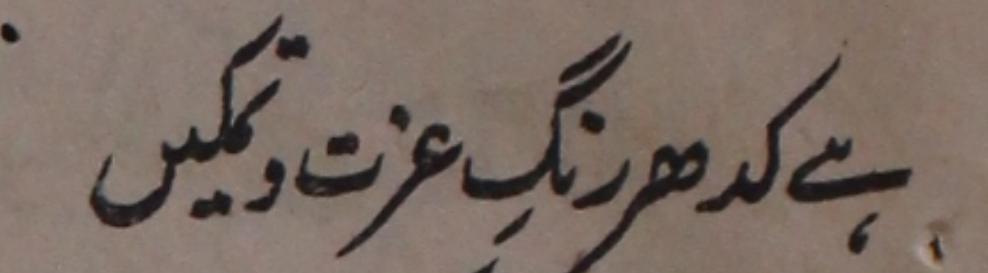 ہے کدھر رنگِ عزت و تمکیں